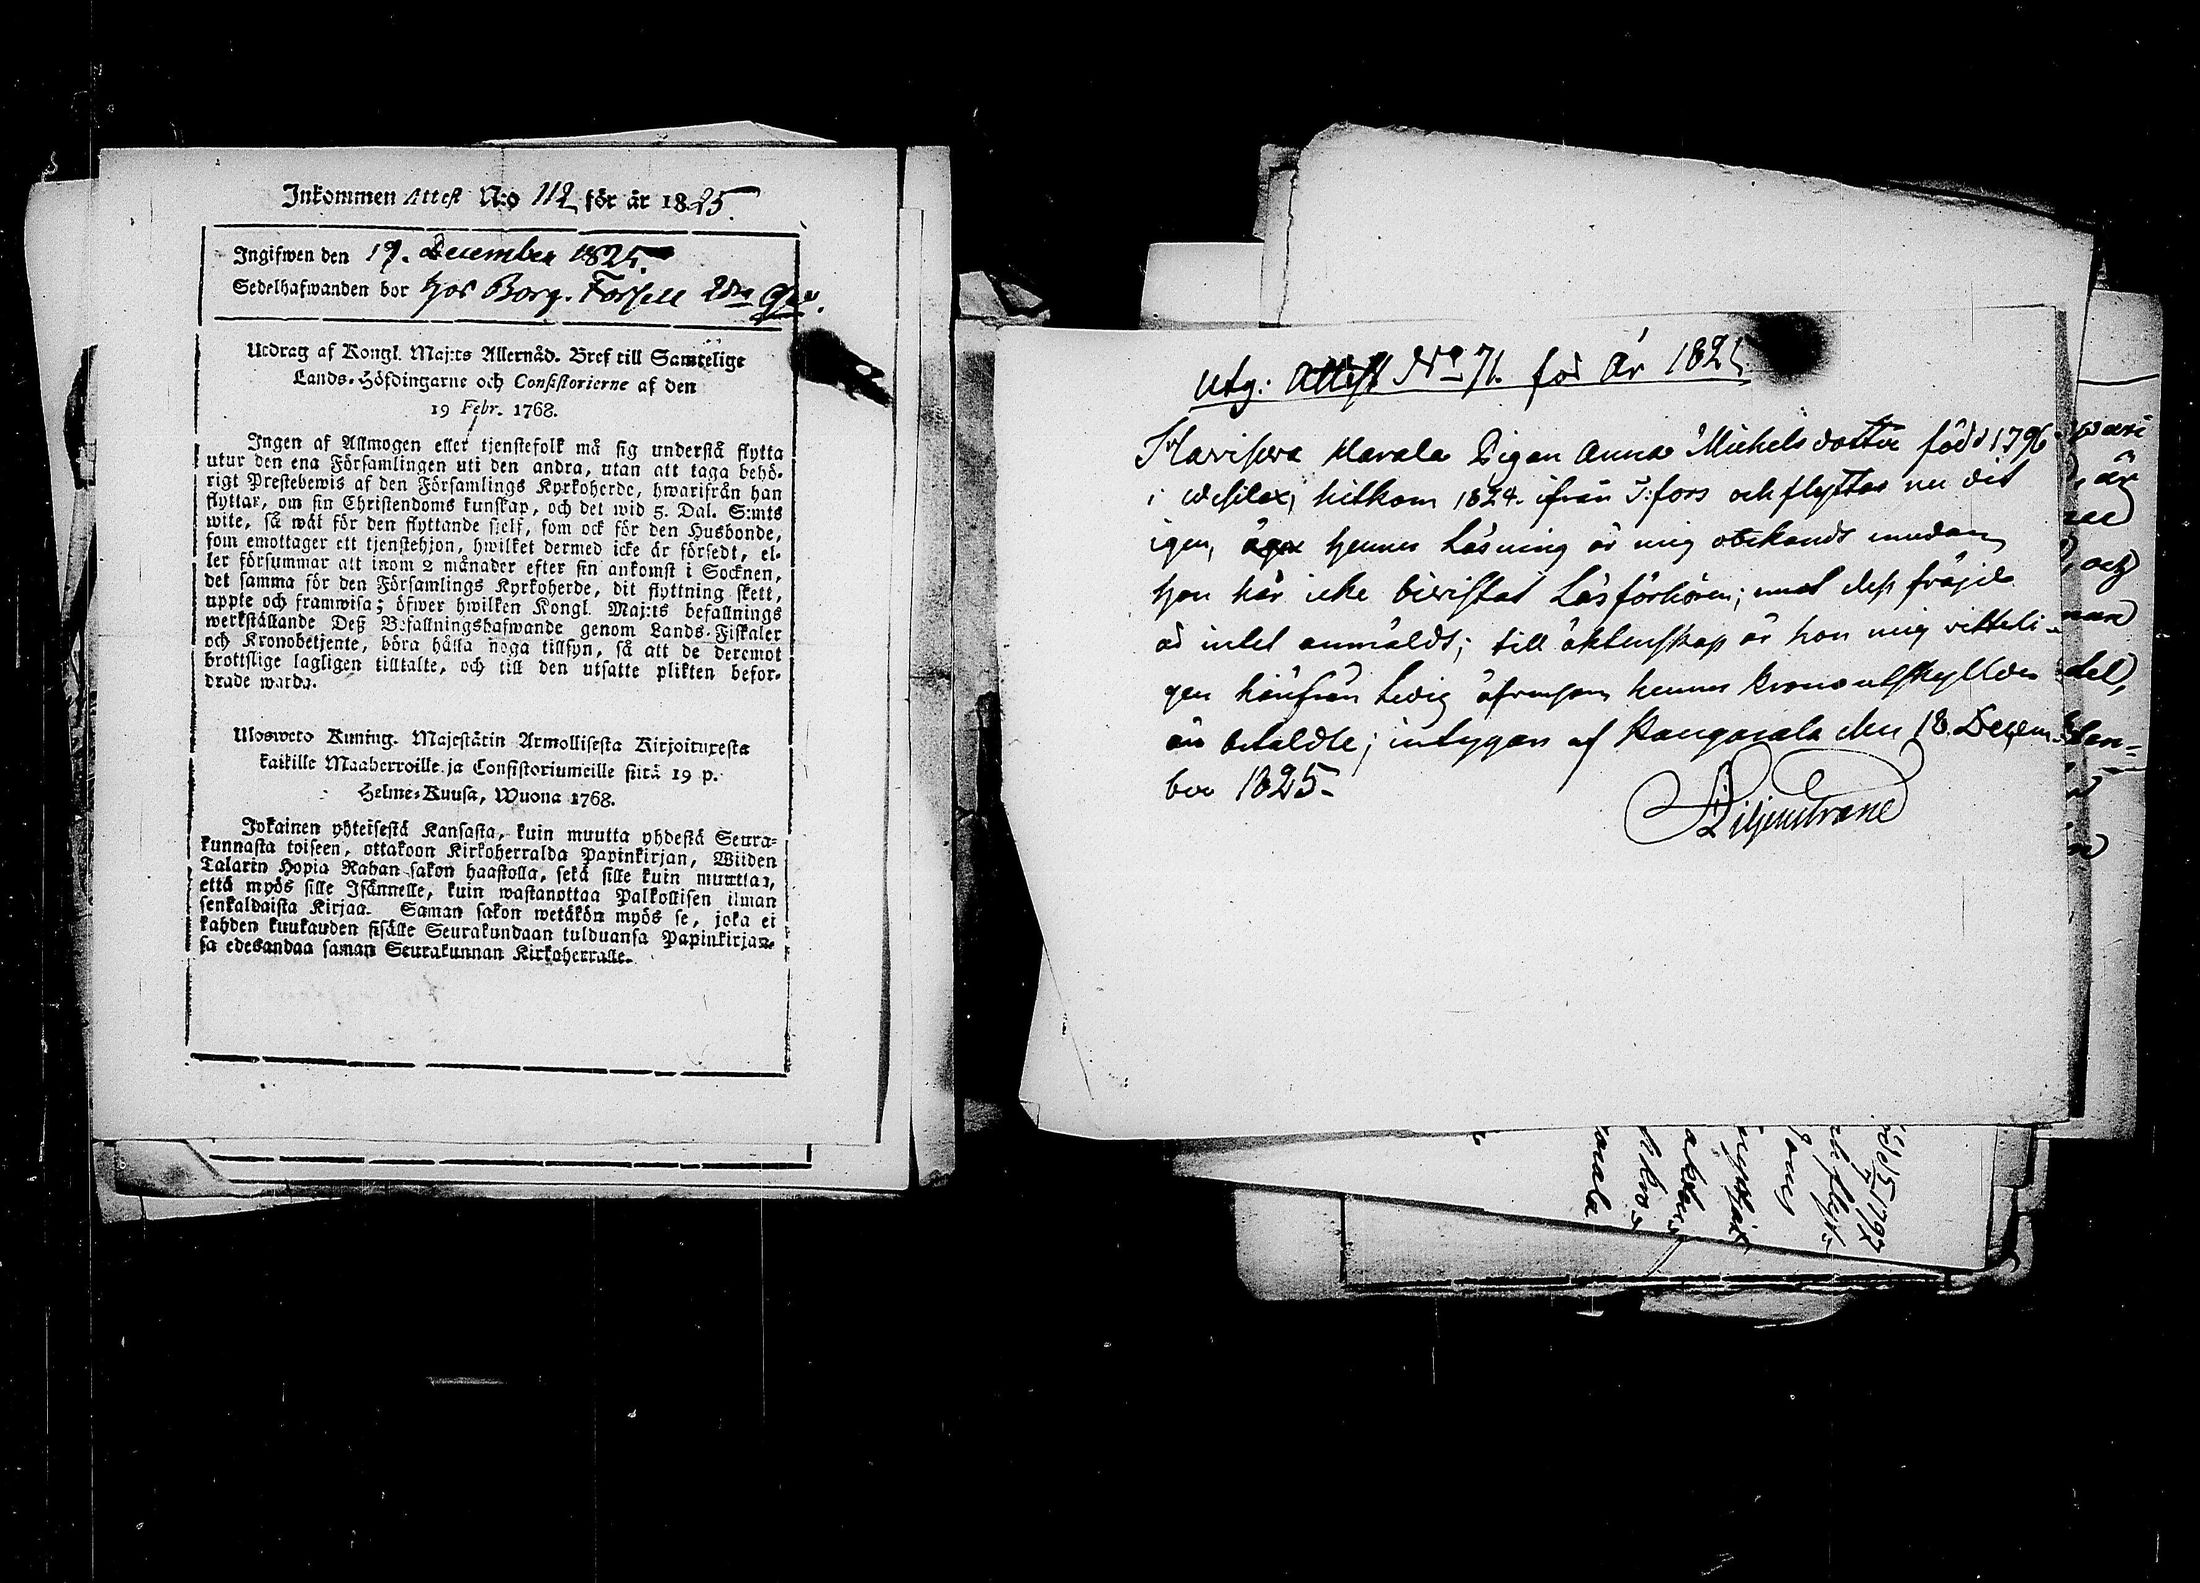 Inkommen Attest N:o 112 för år 1825.
Ingifwen den 19. December 1825.
Sedelhafwanden bor hos Borg. Forsell 2dra Qvu.
Utdrag af Kongl. Maj:ts Allernåd. Bref till Samtelige
Lands-Höfdingarne och Consistorierne af den
19 Febr. 1768.
Ingen af Allmogen eller tjenstefolk må sig understå flytta
utur den ena Församlingen uti den andra, utan att taga behö-
rigt Prestebewis af den Församlings Kyrkoherde, hwarifrån han
flyttar, om sin Christendoms kunskap, och det wid 5. Dal. S:mts
wite, så wäl för den flyttande sjelf, som ock för den Husbonde,
som emottager ett tjenstehjon, hwilket dermed icke är försedt, el-
ler försummar att inom 2 månader efter sin ankomst i Socknen,
det samma för den Församlings Kyrkoherde, dit flyttning skett,
uppte och framwisa; öfwer hwilken Kongl. Maj:ts befallnings
werkställande Deß Befallningshafwande genom Lands-Fiskaler
och Kronobetjente, böra hålla noga tillsyn, så att de deremot
brottslige lagligen tilltalte, och till den utsatte plikten befor-
drade warda.
Uloswetö Kuning. Majestätin Armollisesta Kirjoituxesta
kaikille Maaherroille ja Consistoriumeille siitä 19 p.
Helme-Kuusa, Wuona 1768.
Jokainen yhteisestä Kansasta, kuin muutta yhdestä Seura-
kunnasta toiseen, ottakoon Kirkoherralda Papinkirjan, Wiiden
Talarin Hopia Rahan sakon haastolla, sekä sille kuin muuttaa,
että myös sille Isännelle, kuin wastanottaa Palkollisen ilman
senkaldaista Kirjaa. Saman sakon wetäkön myös se, joka ei
kahden kuukauden sisälle Seurakundaan tulduansa Papinkirjan-
sa edesandaa saman Seurakunnan Kirkoherralle.
Utg: Attest No 71. för År 1825.
Harala Pigan Anna Michelsdotter född 1796
i Wesilax, hitkom 1824. ifrån T:fors och flyttar nu dit
igen, hennes Läsning är mig obekandt medan
hon här icke biwistat Läsförhören; mot dess fräjd
är intet anmäldt; till äktenskap är hon mig vetteli-
gen härifrån Ledig äfvensom hennes Kronoutskylder
än betaldte; intygar af Kangasala den 18. Decem-
ber 1825-
Liljenstrand